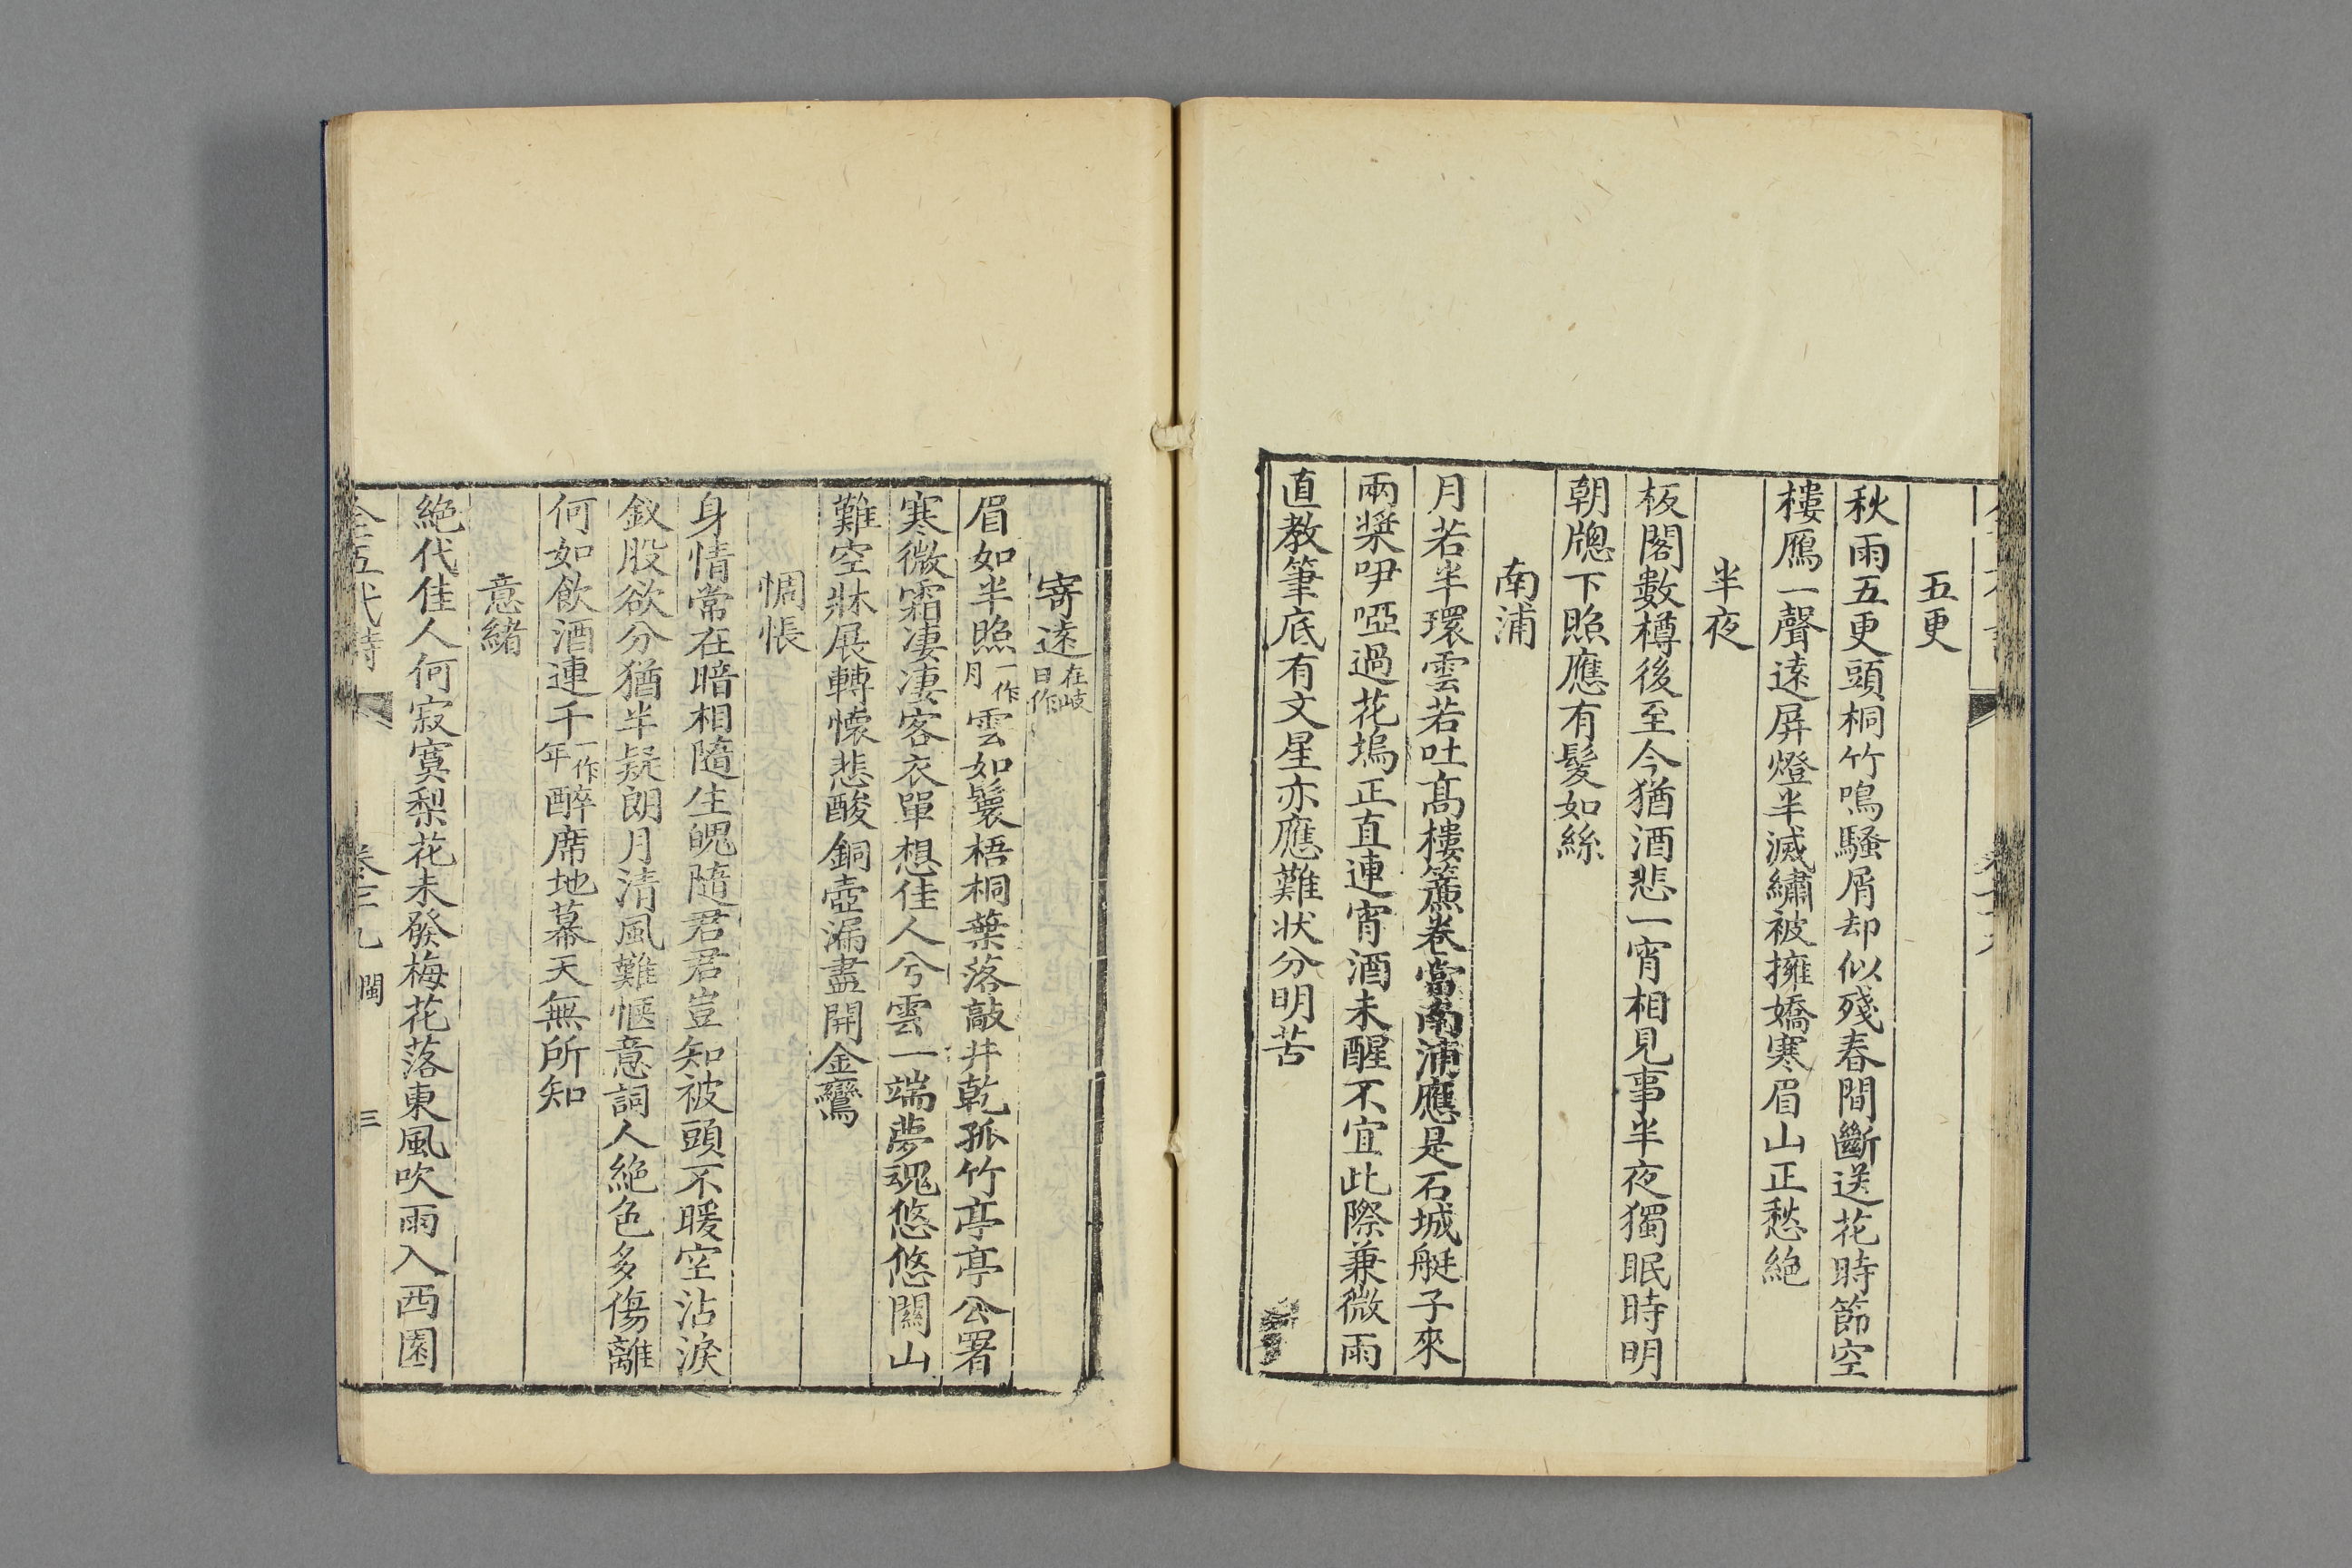 五更
秋雨五更頭桐竹鳴騷屑却似殘春間斷送花時節空
樓鴈一聲遠屏燈半滅繡被擁嬌寒眉山正愁絕
半夜
板閣數樽後至今猶酒悲一宵相見事半夜獨眠時明
朝牕下照應有髮如絲
南浦
月若半環雲若吐高樓簾卷當南浦應是石城艇子來
兩槳咿啞過花塢正直連宵酒未醒不宜此際兼微雨
直教筆底有文星亦應難狀分明苦
寄遠在岐日作
眉如半照一作月雲如鬟梧桐葉落敲井乾孤竹亭亭公署
寒微霜凄凄客衣單想佳人兮雲一端夢魂悠悠關山
難空牀展轉懷悲酸銅壺漏盡開金鸞
惆悵
身情常在暗相隨生魄隨君君豈知被頭不暖空沾淚
釵股欲分猶半疑朗月清風難愜意詞人絕色多傷離
何如飲酒連千一作年醉席地幕天無所知
意緒
絕代佳人何寂寞梨花未發梅花落東風吹雨入西園
全五代詩 卷三九 閩 三